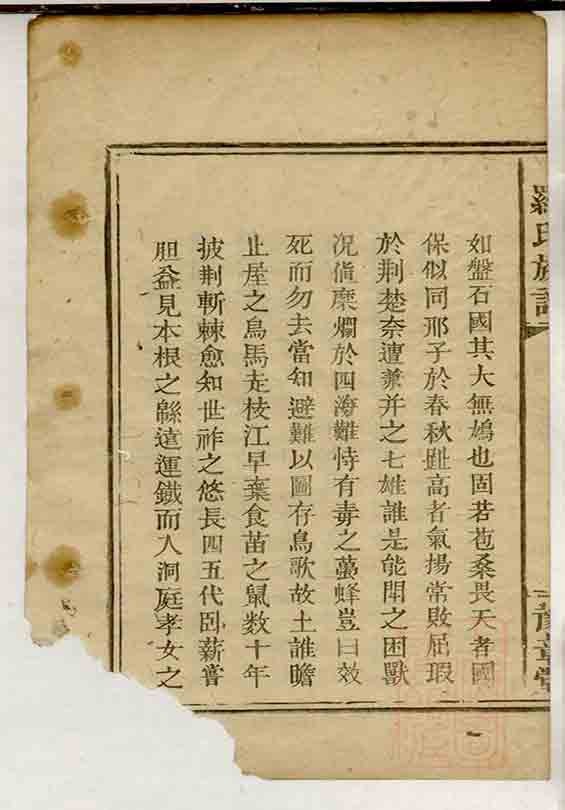 羅氏族譜
豫章堂
如盤石國其大無鳩也固若苞桑畏天者國
保似同邢子於春秋趾高者氣揚常敗屈瑕
於荆楚奈遭兼并之七雄誰是能閗之困獸
況値糜爛於四潑難恃有毒之蠆蜂豈曰效
死而勿去當知避難以圖存鳥歌故土誰瞻
止屋之烏馬走枝江早棄食苗之鼠数十年
披荆斬棘愈知世祚之悠長四五代卧薪嘗
胆益見本根之緜遠運鐡而入洞庭孝女之